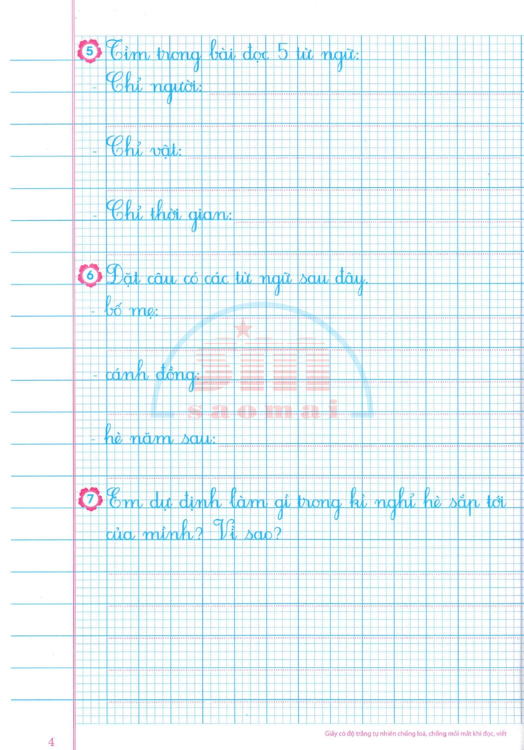 5 Tìm trong bài đọc 5 từ ngữ:
- Chỉ người:
- Chỉ vật:
- Chỉ thời gian:
6 Đặt câu có các từ ngữ sau đây.
- bố mẹ:
- cánh đồng:
- hè năm sau:
7 Em dự định làm gì trong kì nghỉ hè sắp tới
của mình? Vì sao?
saomai
4
Giấy có độ trắng tự nhiên chống loá, chống mỏi mắt khi đọc, viết